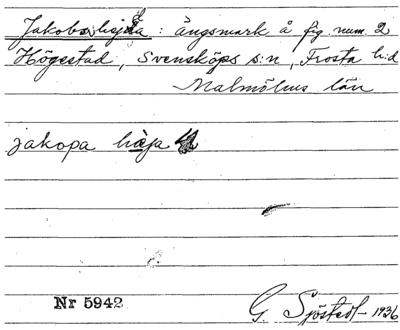 : ängsmark å fig num 2
Högestad, Svensköps s:n, Frosta h:d
Malmöhus län
jakopa
Nr 5942
G. Sjöstedt 1936